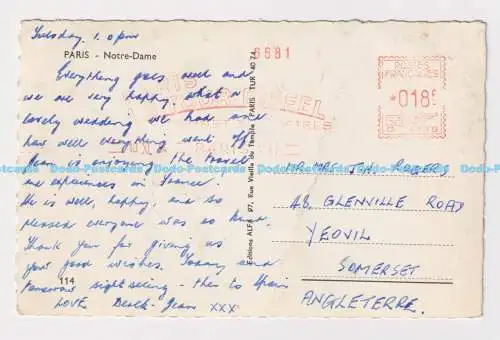 Tuesday 1.0 pm
PARIS - Notre-Dame
Everything goes well and
we are very happy. What a
lovely wedding we had and
how well everything went off
Jean is enjoying the travel
and experiences in France.
He is well, happy, and so
pleased everyone was so kind.
Thank you for giving us
your good wishes. Today and
tomorrow sightseeing - then to Spain
LOVE Derek - Jean XXX
114
Editions ALFA 97, Rue Vieille du Temple, PARIS TUR 40 74
6681
POSTES
FRANÇAISES
*018
PARIS
MR. MRS T.W. ROGERS
48, GLENVILLE ROAD
YEOVIL
SOMERSET
ANGLETERRE.
Do-Postcards Do-Postcards Do-Postcards Do-Postcards Do-Postcards Do-Postcards